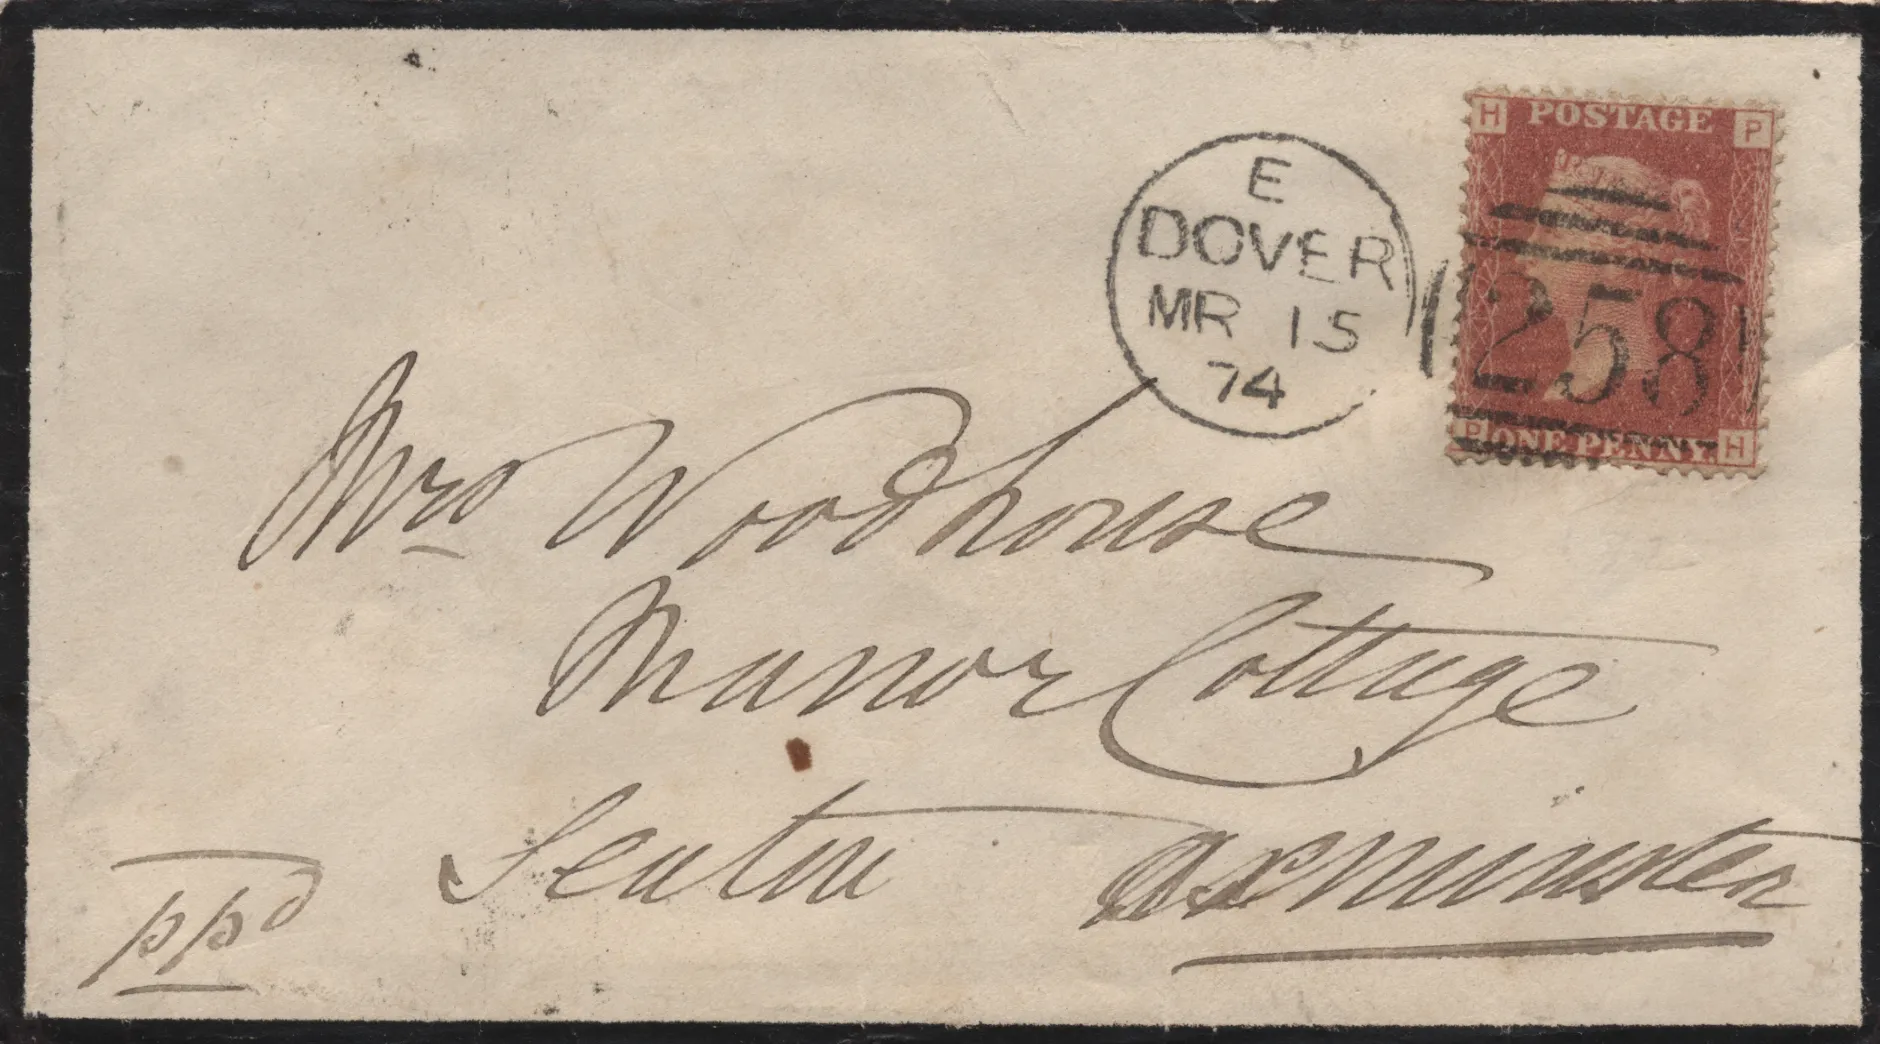 H POSTAGE P
E
DOVER
MR 15
74
258
P ONE PENNY. H
Mrs Woodhouse
Manor Cottage
Seaton Axminster
ppd